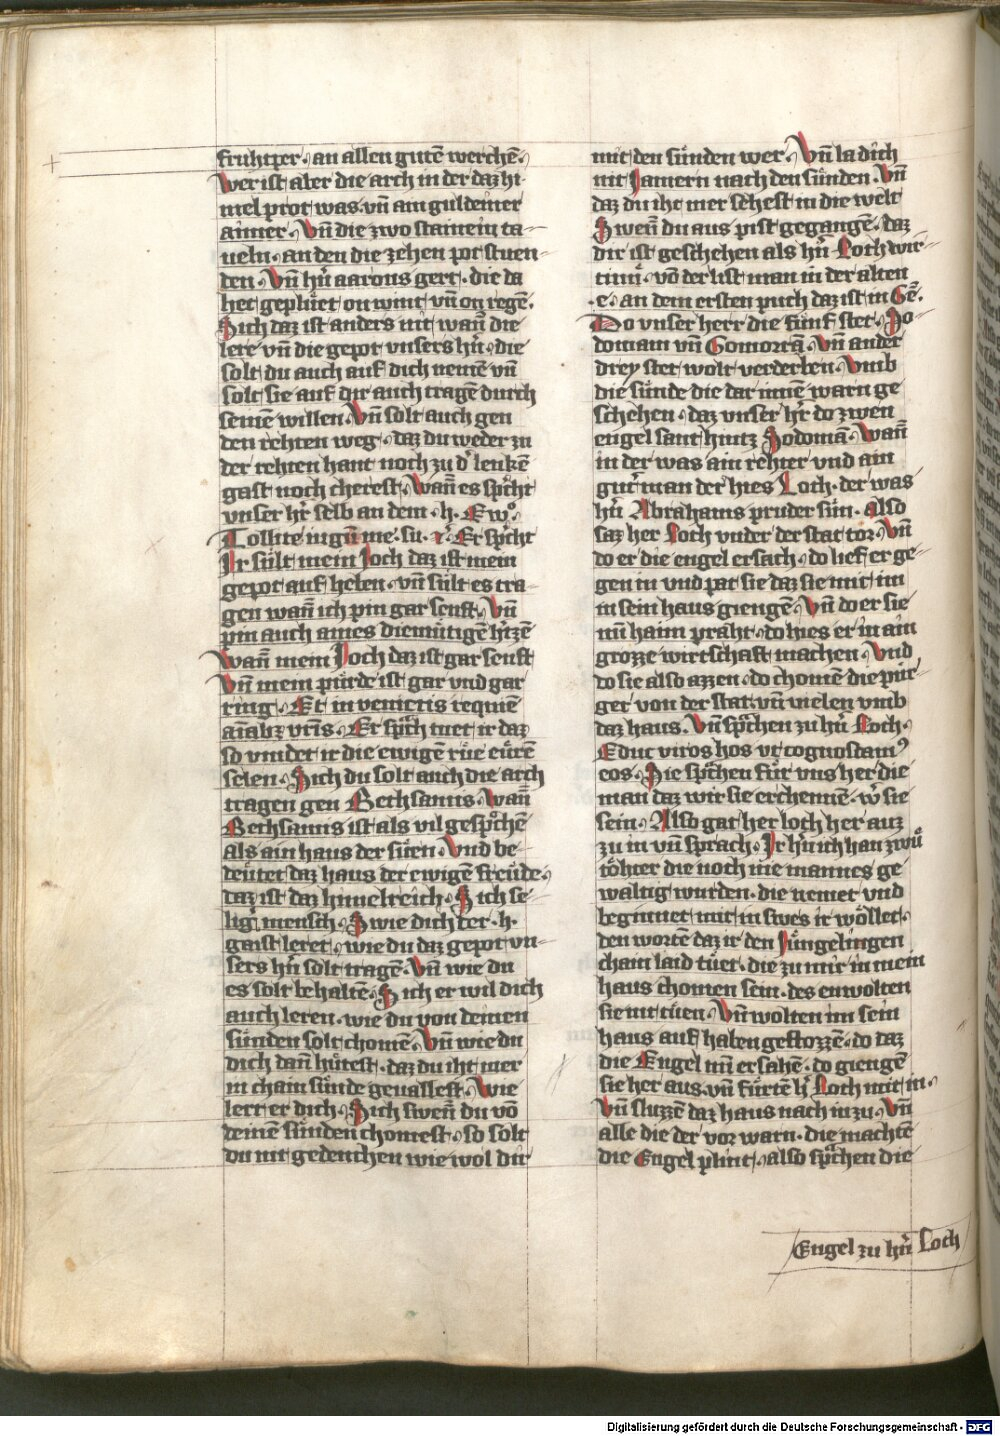 fruhtper · an allen gutē werchē ·
Wer ist aber die arch in der daz hi-
mel prot was · vn̄ ain guldeiner
aimer · Vn̄ die zwo stainein ta-
ueln · an den die zehen pot stuen-
den · Vn̄ hr̄n aarons gert · die da
het geplüet on wint vn̄ on regē ·
Sich daz ist anders nit wan̄ die
lere vn̄ die gepot vnsers hr̄n · die
solt du auch auf dich nemē vn̄
solt sie auf dir auch tragē durch
seinē willen · Vn̄ solt auch gen
den rehten weg · daz du weder zu
der rehten hant noch zu d' lenkē
gast noch cherest · Wan̄ es sprͨht
vnser hr̄ selb an dem · h · Ewº ·
Tollite iugū me · su · r̄ · Er sprͨht
Ir sült mein Joch daz ist mein
gepot auf heben · vn̄ sült es tra-
gen wan̄ ich pin gar senft · Vn̄
pin auch aines diemütigē h'tzē
Wan̄ mein Joch daz ist gar senft
Vn̄ mein pürde ist gar vnd gar
ring · Et invenietis requiē
aīabꝫ vr̄is · Er sprͨh tuet ir daz
so vindet ir die ewigē rüe eürē
selen · Sich du solt auch die arch
tragen gen Bethsamis · Wan̄
Bethsamis ist als vil gesprͦchē
als ain haus der süen · Vnd be-
deütet daz haus der ewigē freüde ·
daz ist daz himelreich · Sich se-
lig' mensch · Swie dich der · h ·
gaist leret · wie du daz gepot vn-
sers hr̄n solt tragē · Vn̄ wie du
es solt behaltē · Sich er wil dich
auch leren · wie du von deinen
sünden solt chomē · Vn̄ wie du
dich dan̄ hütest · daz du iht mer
in chain sünde geuallest · Wie
lert er dich · Sich swen̄ du vō
deinē sünden chomest · so solt
du nit gedenchen wie wol dir
mit den sünden wer · Vn̄ la dich
nit Jamern nach den sünden · Vn̄
daz du iht mer sehest in die welt
Swen̄ du aus pist gegangē · daz
dir ist geschehen als hr̄n Loth wir-
tinn̄ · vō der list man in der alten
· e · an dem ersten puch daz ist in Gē ·
Do vnser herr die fünf stet · So-
domam vn̄ Gomorrā · Vn̄ ander
drey stet wolt verderben · Vmb
die sünde die dar innē warn ge
schehen · daz vnser hr̄ do zwen
engel sant hintz Sodomā · Wan̄
in der was ain rehter vnd ain
gut' man der hies Loch · der was
hr̄n Abrahams pruder sün · Also
saz her Loch vnder der stat tor · Vn̄
do er die engel ersach · do lief er ge-
gen in vnd pat sie daz sie mit im
in sein haus giengē · Vn̄ do er sie
nū haim praht · do hies er in ain
grozze wirtschaft machen · Vnd
do sie also azzen · do chomē die pür-
ger von der stat · vn̄ vielen vmb
daz haus · Vn̄ sprͦchen zu hr̄n Loch ·
Educ viros hos vt cognoscamꝰ
eos · Sie sprͣchen für vns her die
man daz wir sie erchennē · w' sie
sein · Also gat her loch her auz
zu in vn̄ sprach · Ir hr̄n ich han zwu̇
töhter die noch nie mannes ge
waltig wurden · die nemet vnd
beginnet mit in swes ir wöllet ·
den wortē daz ir den Jüngelingen
chain laid tüet · die zu mir in mein
haus chomen sein · des enwolten
sie nit tüen · Vn̄ wolten im sein
haus auf haben gestozzē · do daz
die Engel nū ersahē · do giengē
sie her aus · vn̄ fürtē h' Loch mit in ·
Vn̄ sluzzē daz haus nach in zu · Vn̄
alle die der vor warn · die machtē
die Engel plint · also sprͣchen die
Engel zu hr̄n Loch
Digitalisierung gefördert durch die Deutsche Forschungsgemeinschaft - DFG